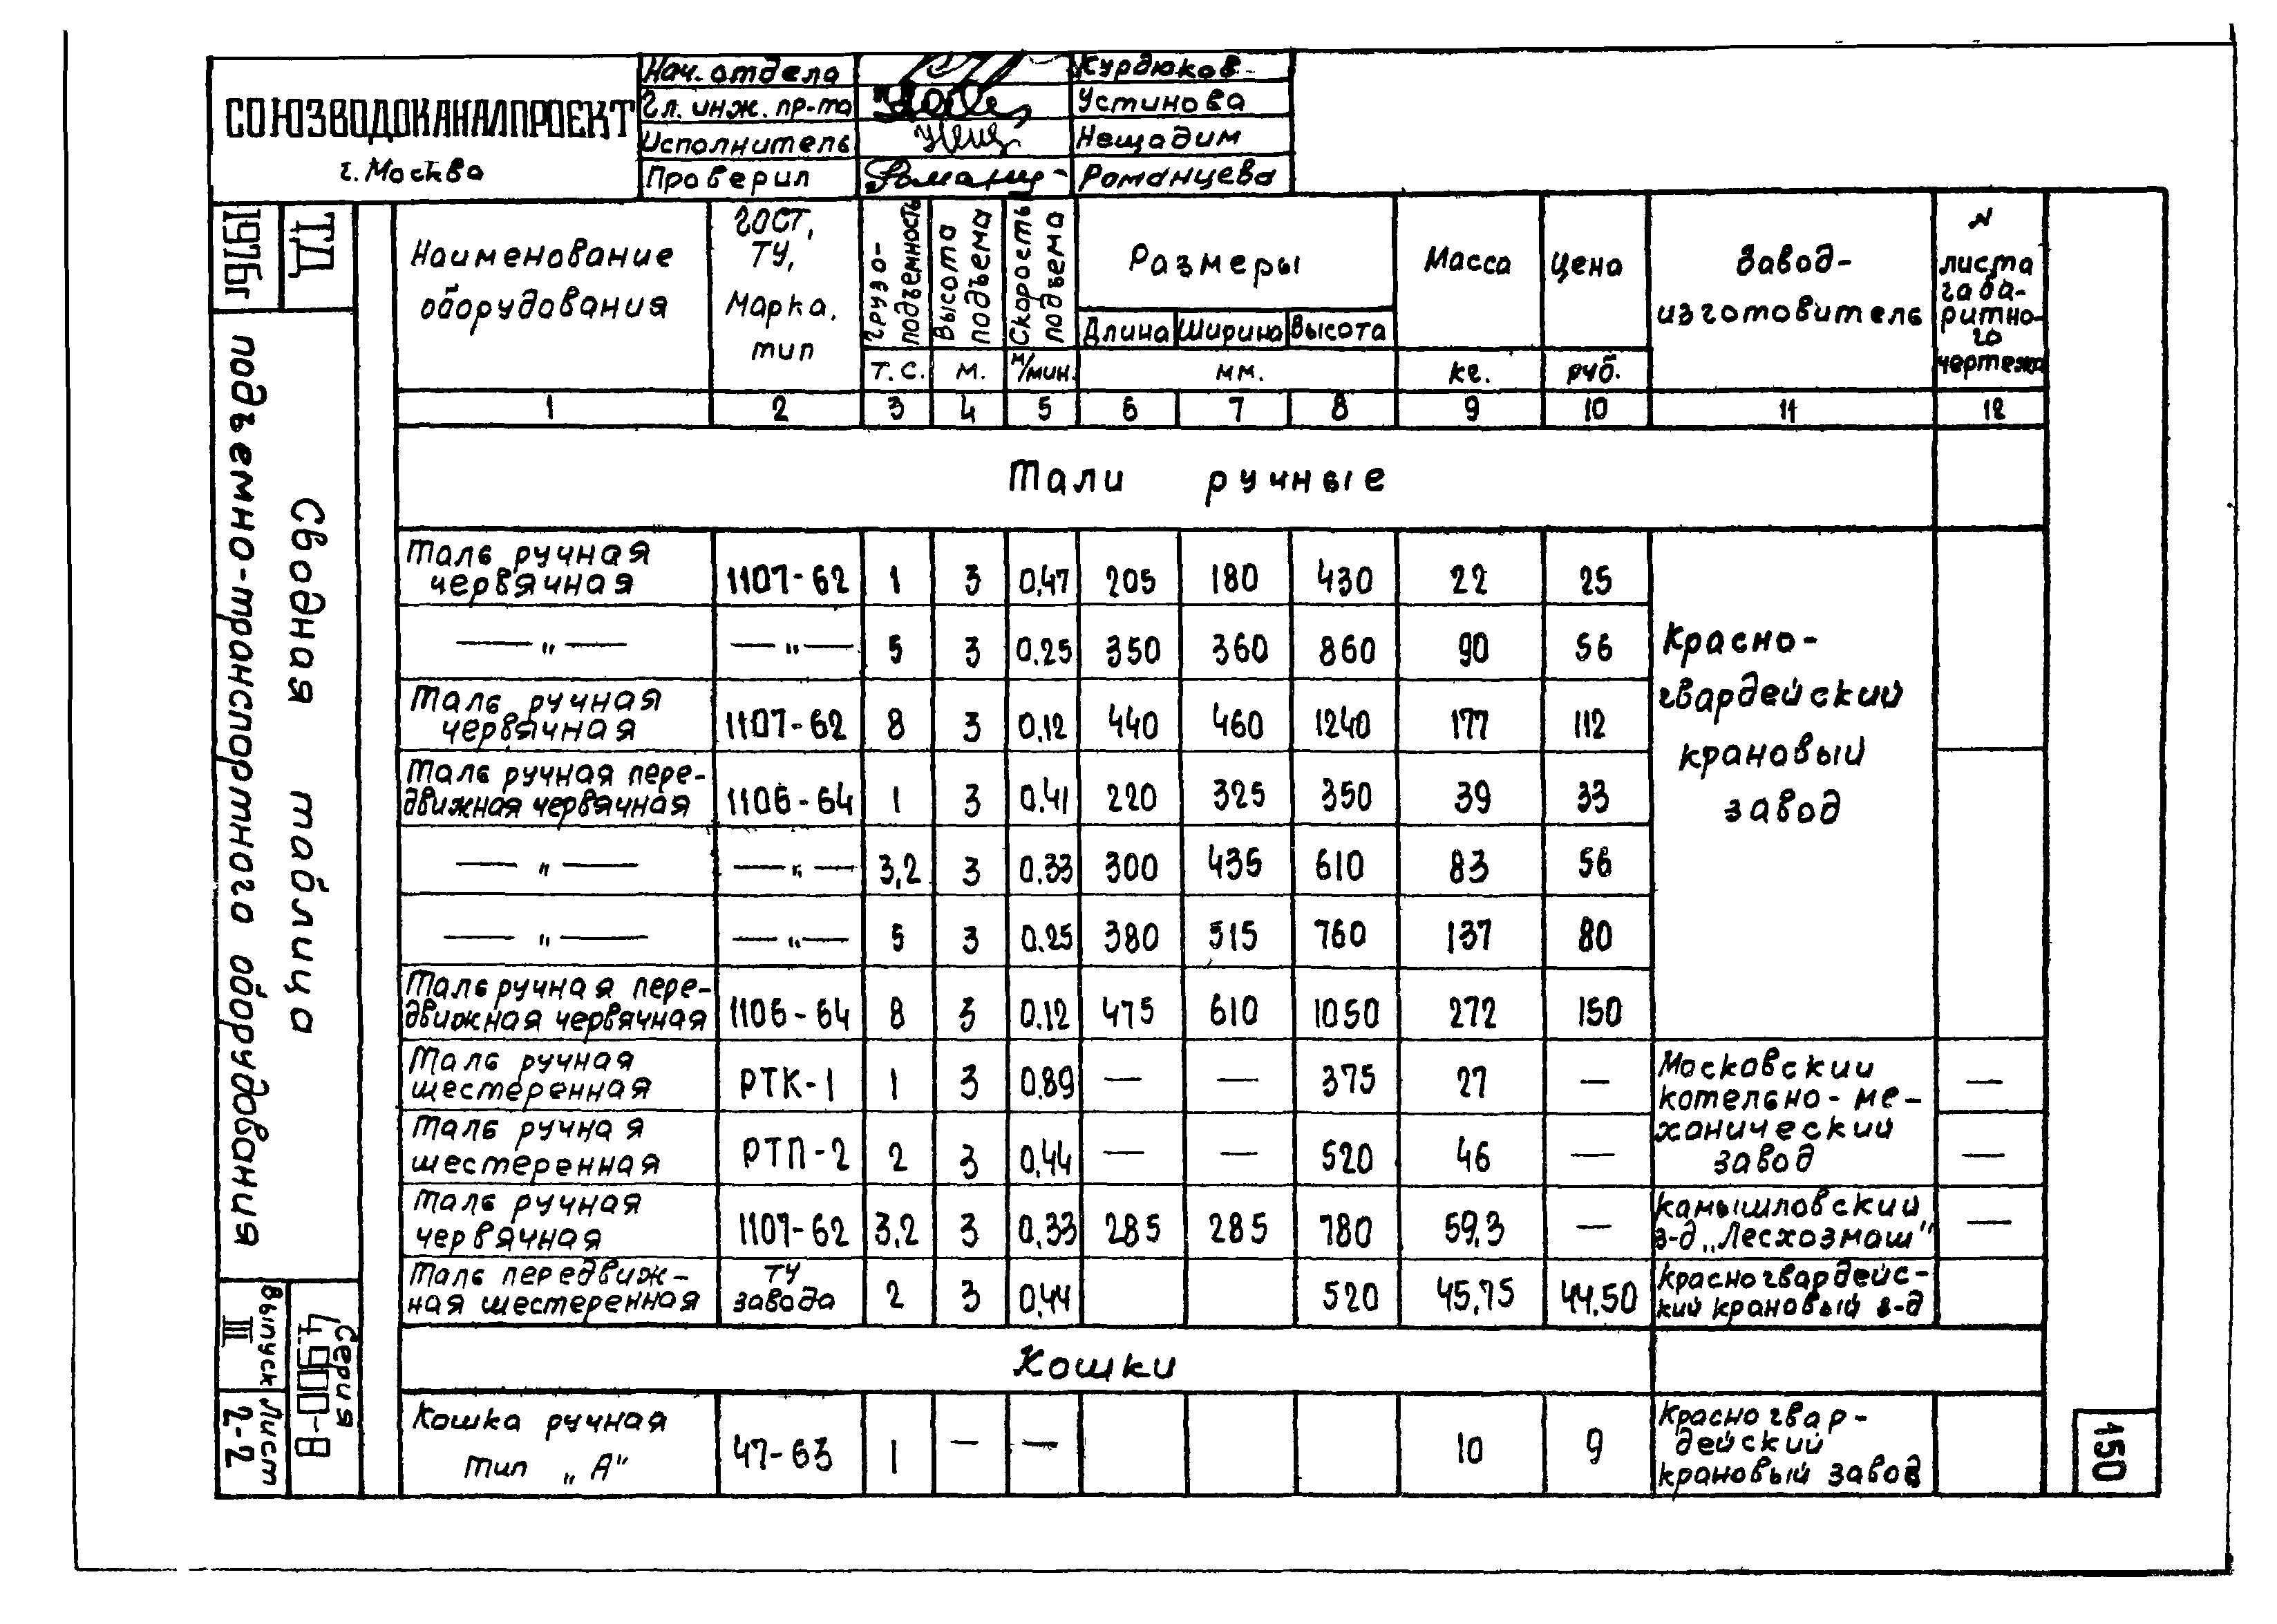 СОЮЗВОДОКАНАЛПРОЕКТ
г. Москва
Нач. отдела Курдюков
Гл. инж. пр-та Устинова
Исполнитель Нещадим
Проверил Романцева
1976г
ТД
Сводная таблица
подъемно-транспортного оборудования
Серия
4.900-8
Выпуск
III
Лист
2-2
Наименование оборудования
ГОСТ, ТУ, Марка, тип
Грузо-подъемность
Высота подъема
Скорость подъема
Размеры
Длина Ширина Высота
Масса
Цена
Завод-изготовитель
N листа габа-ритно-го чертежа
т.с. м. м/мин. мм. кг. руб.
1 2 3 4 5 6 7 8 9 10 11 12
Тали ручные
Таль ручная
червячная 1107-62 1 3 0,47 205 180 430 22 25
— „ — — „ — 5 3 0.25 350 360 860 90 56
Таль ручная
червячная 1107-62 8 3 0.12 440 460 1240 177 112
Таль ручная пере-
движная червячная 1106-64 1 3 0.41 220 325 350 39 33
— „ — — „ — 3,2 3 0.33 300 435 610 83 56
— „ — — „ — 5 3 0.25 380 515 760 137 80
Таль ручная пере-
движная червячная 1106-64 8 3 0.12 475 610 1050 272 150
Красно-
гвардейский
крановый
завод
Таль ручная
шестеренная РТК-1 1 3 0.89 — — 375 27 — —
Таль ручная
шестеренная РТП-2 2 3 0,44 — — 520 46 — —
Московский
котельно-ме-
ханический
завод
Таль ручная
червячная 1107-62 3,2 3 0,33 285 285 780 59,3 — —
Камышловский
з-д „Лесхозмаш"
Таль передвиж-
ная шестеренная ТУ завода 2 3 0,44 520 45,75 44.50
Красногвардейс-
кий крановый з-д
Кошки
Кошка ручная
тип „А" 47-63 1 — — 10 9
Красногвар-
дейский
крановый завод
150